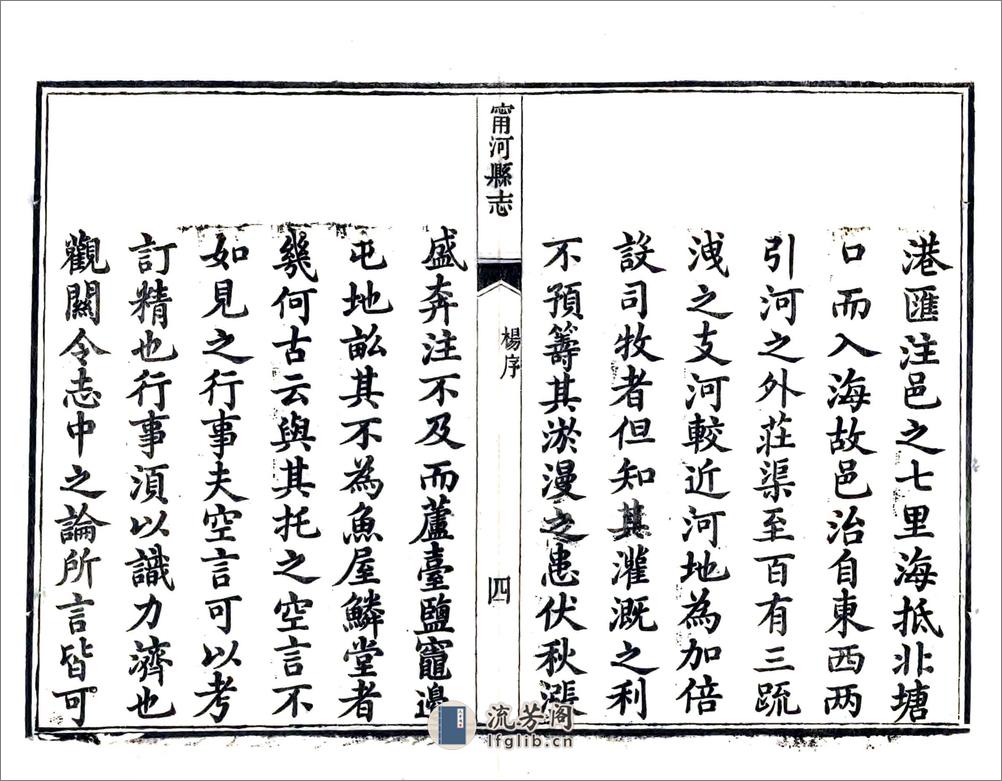 港匯注邑之七里海抵北塘
口而入海故邑治自東西两
引河之外莊渠至百有三疏
洩之支河較近河地為加倍
設司牧者但知其灌溉之利
不預籌其淤漫之患伏秋漲
甯河縣志
楊序
四
盛奔注不及而蘆臺鹽竈邊
屯地畝其不為魚屋鱗堂者
幾何古云與其托之空言不
如見之行事夫空言可以考
訂精也行事須以識力濟也
觀關令志中之論所言皆可
流芳阁
lfglib.cn